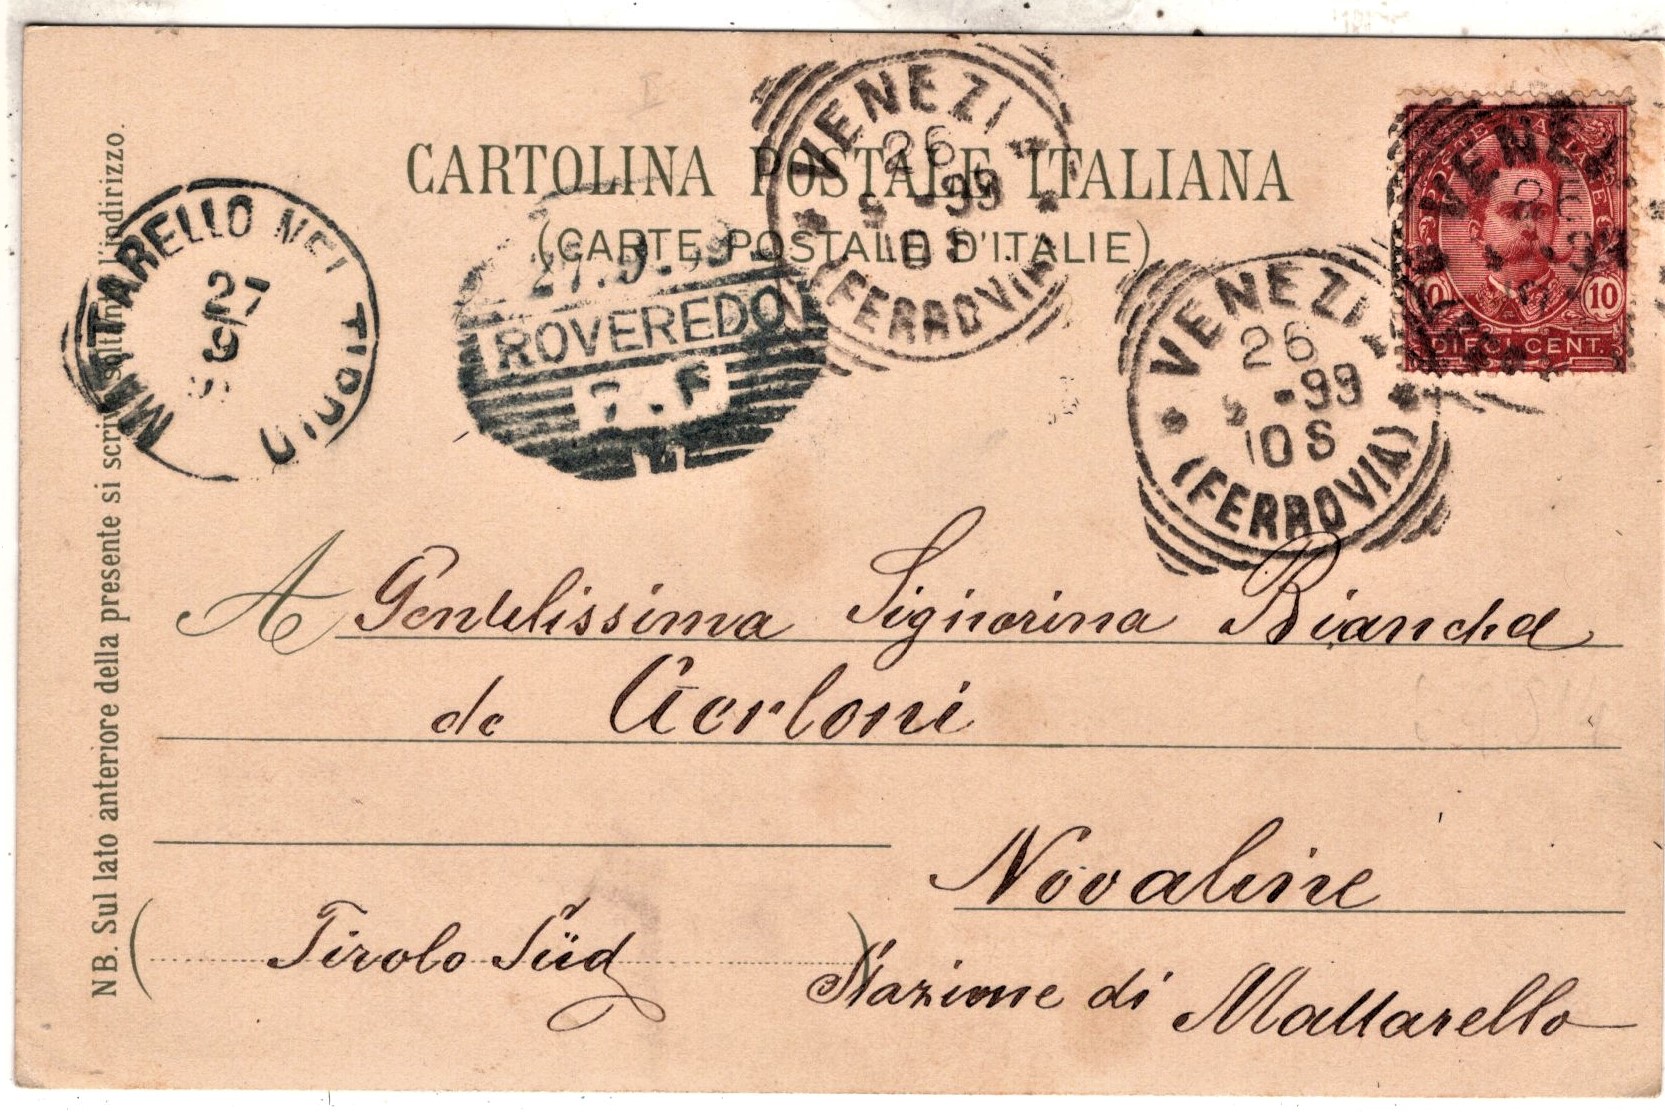 CARTOLINA POSTALE ITALIANA
(CARTE POSTALE D'ITALIE)
NB. Sul lato anteriore della presente si scrive soltanto l'indirizzo.
MATTARELLO NEL TIROLO
27
9
27.9.99
ROVEREDO
VENEZI
26
9 -99
10 S
(FERROVIA)
VENEZI
26
9 -99
10 S
(FERROVIA)
VENEZ
10 10
DIECI CENT.
A Gentilissima Signorina Bianca
de
Novaline
(Tirolo Süd)
Stazione di Mattarello